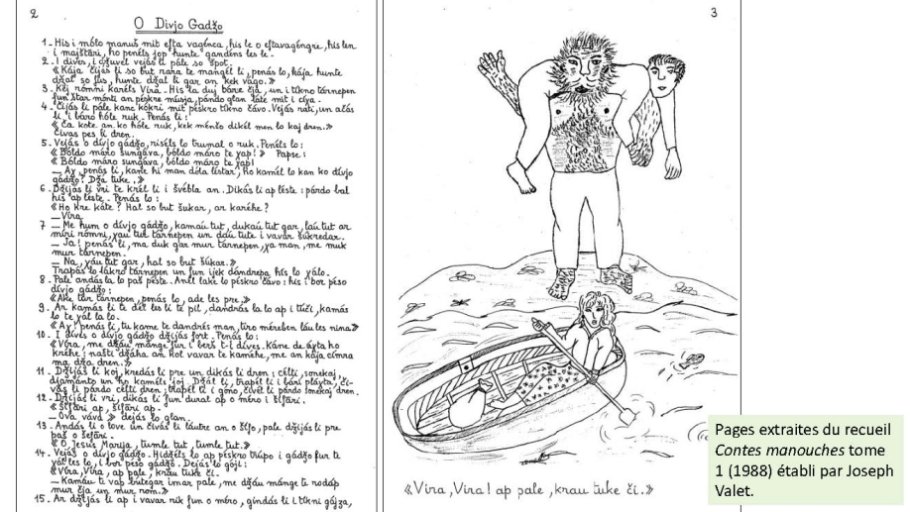 2
O Divjo Gadžo
1 - His i mólo manuš mit efta vagénca, his le o eftavagéngre, his len
i majštári, ho penéls jop hunte gandéns les le.
2 - I díves, i džuvel vejás li pále so špot.
« Kája čijás li so but rara te mangél li, penás lo, kája hunte
džal so jus, hunte džal li gar an kek vágo. »
3 - Kéj rómni karéls Víra. His la duj báre čja, un i tíkno tárnepen
fun štar mónti an péskre músja, pándo glan late mit i číya.
4 - Čijás li pále kanc kókri mit péskro tíkno čávo. Vejás rati, un ačás
li, i báro hóle ruk. Penás li :
« Ca kote an ko hóle ruk, kek ménšo dikél men lo koj dren. »
Čivas pes li dren.
5 - Vejás o dívjo gádžo, riséls lo trumal o ruk. Penéls lo :
« Bóldo máro sungáva, bóldo máro te yap ! » Papse :
« Bóldo máro sungáva, bóldo máro te yap !
_ Ay, penás li, kane hi man déla lístar, ho kamél lo kan ko dívjo
gádžo ? Dža tuke. »
6 - Džijás li vri te krél li i švébla an. Dikás li ap léste : párdo bal
his ap léste. Penás lo :
« Ho kre káte ? Hal so but šukar, ar karéhe ?
_ Víra
7 _ Me hum o dívjo gádžo, kamáu tut, dukáu tut gar, láu tut ar
míri rómni, yau tut tárnepen un dáu tute i vavar šúkredar.
_ Ja ! penás li, ma duk gar mur tárnepen, ya man, me muk
mur tárnepen.
_ Na, yáu tut gar, hal so but šúkar. »
Trapás lo lákro tárnepen un fun ijek dándrepa his lo yálo.
8 - Pale andás la lo paš péste. Anél lake lo péskro čávo : his i bor péso
dívjo gádžo :
« Ake tur tárnepen, penás lo, ade les pre. »
9 - Ar kamás li te del les li te pil, dandrás la lo ap i tuči, kamás
lo te yál la lo.
« Ay ! penás li, tu kame te dandrés man, tíro méreben láu les nina »
10 - I díves o dívjo gádžo džijás fort. Penás lo :
« Víra, me džáu mánge fun i berš t-l díves. Káne de áyta ho
kréhe ; našti džáha an kol vavar te kaméhe, me an kája címra
ma dža dren. »
11 - Džijás li koj, kredás li pre un dikás li dren : célti, sonekaj,
dijamánto un ho kaméls joj. Džál li, trapél li i bári pláyta, či-
vás li párdo célti dren ; trapél li i góno, čivél li párdo sonekaj dren.
12 - Džijás li vri, dikás li fun dural ap o méro i šífári.
« Šífári ap, šífári ap -
_ Ova vává » dejás lo glan.
13 - Andás li o love un čivás li láutre an o šífo, pale džijás li pre
paš o šefári.
« O, Jesus Marija, tumle tut, tumle tut. »
14 - Vejás o dívjo gádžo. Hidžéls lo ap péskro trúpo i gádžo fur te
yál les lo, i bor péso gádžo. Dejás lo góji :
« Víra, Víra, ap pale, krau tuke či.
_ Kamáu te vap butegar imar pale, me džáu mánge te rodáp
mur čja un mur rom. »
15 - Ar džijás li ap i vavar rik fun o méro, gindás li i tíkni gájza,
3
« Víra, Víra ! ap pale, krau tuke či. »
Pages extraites du recueil
Contes manouches tome
1 (1988) établi par Joseph
Valet.